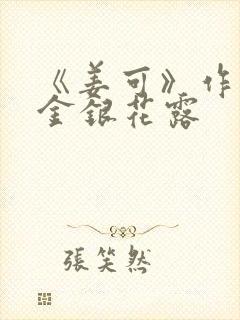 《姜可》作
金銀花露
張笑然